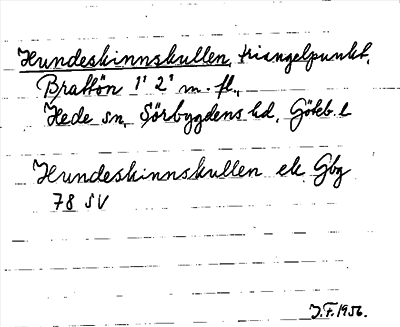 Hundeskinnskullen, triangelpunkt,
Brattön 1¹ 2¹ m. fl.,
Hede sn, Sörbygdens hd, Göteb. l
Hundeskinnskullen ek Gbg
78 SV
J.F. 1956.